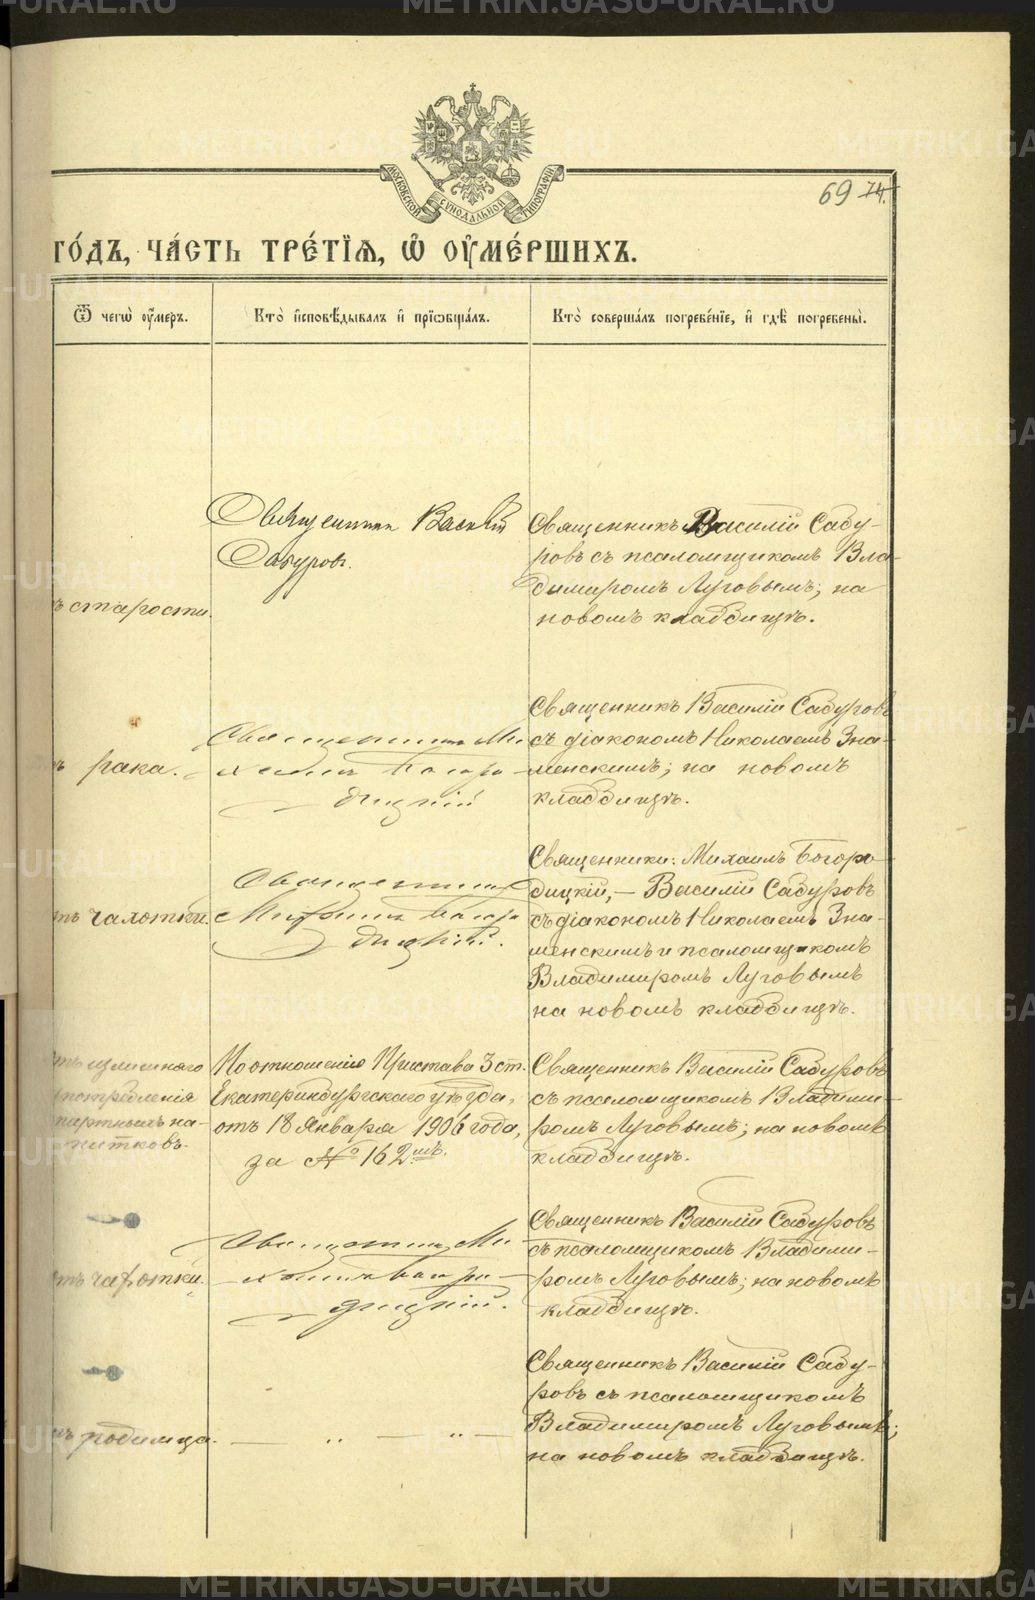 METRIKI.GASO-URAL.RU
МОСКОВСКОЙ СѴНОДАЛЬНОЙ ТИПОГРАФІИ
69 74.
ГО́ДЪ, ЧА́СТЬ ТРЕ́ТІѦ, Ѽ ОУ҆МЕ́РШИХЪ.
Ѿ чегѡ̀ оу҆́меръ.
Кто̀ и҆сповѣ́дывалъ и҆ прїѡбща́лъ.
Кто̀ соверша́лъ погребе́нїе, и҆ гдѣ̀ погребены̀.
ъ старости.
Священникъ Василій
Сабуровъ.
Священникъ Василій Сабу-
ровъ съ псаломщикомъ Вла-
димиромъ Луговымъ; на
новомъ кладбищѣ.
ъ рака.
Священникъ Ми-
хаилъ Богоро-
дицкій
Священникъ Василій Сабуровъ
съ діакономъ Николаемъ Зна-
менскимъ; на новомъ
кладбищѣ.
тъ чахотки.
Священникъ
Михаилъ Богоро
дицкій.
Священники: Михаилъ Богоро-
дицкій, – Василій Сабуровъ
съ діакономъ Николаемъ Зна-
менскимъ и псаломщикомъ
Владимиромъ Луговымъ
на новомъ кладбищѣ.
тъ излишняго
потребленія
спиртныхъ на-
питковъ.
По отношенію Пристава 3 ст.
Екатеринбургскаго уѣзда,
отъ 18 Января 1906 года,
за № 162мъ.
Священникъ Василій Сабуровъ
съ псаломщикомъ Владими-
ромъ Луговымъ; на новомъ
кладбищѣ.
тъ чахотки.
Священникъ Ми
хаилъ Богоро-
дицкій.
Священникъ Василій Сабуровъ
съ псаломщикомъ Владими-
ромъ Луговымъ; на новомъ
кладбищѣ.
тъ родимца.
— ,, — ,, —
Священникъ Василій Сабу-
ровъ съ псаломщикомъ
Владимиромъ Луговымъ;
на новомъ кладбищѣ.
METRIKI.GASO-URAL.RU